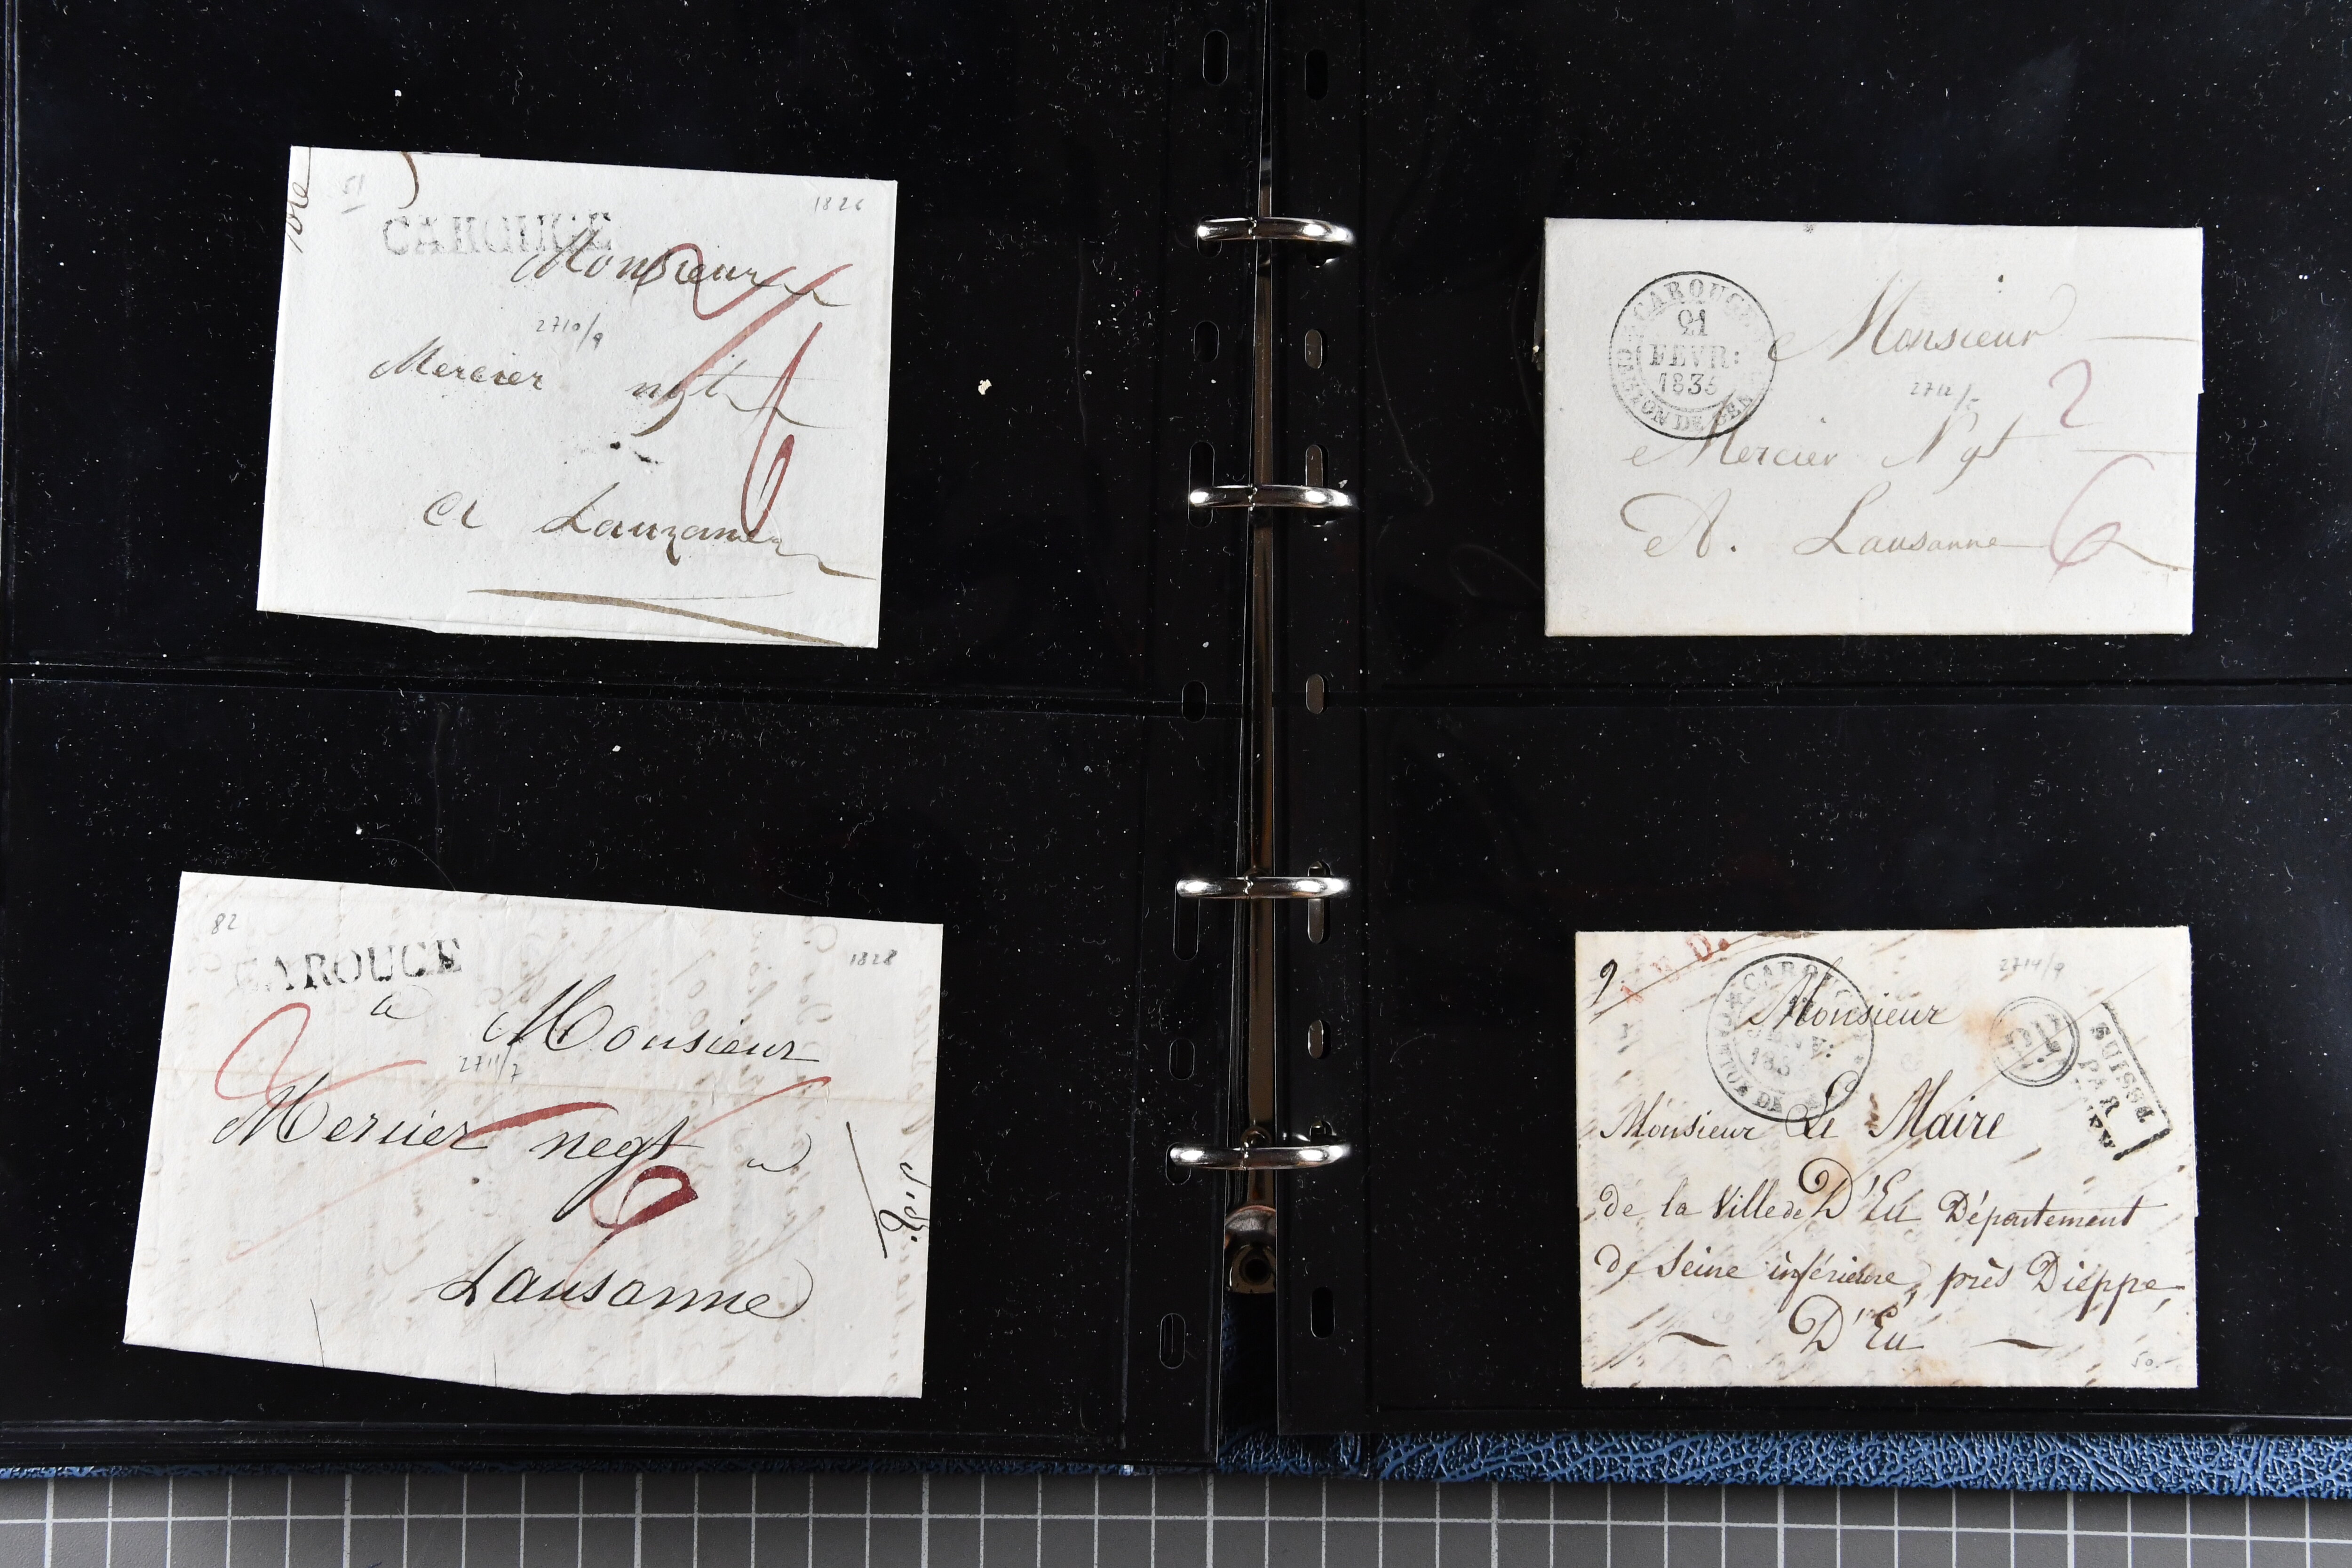 51
1826
CAROUGE
Monsieur
2710/9
Mercier negt
a Lauzanne
82
1828
CAROUGE
a Monsieur
2711/7
Mercier negt
Lausanne
CAROUGE
21
FEVR:
1835
CANTON DE GEN
Monsieur
2
Mercier Ngt
6
A. Lausanne
2714/9
CAROUGE
Monsieur
SUISSE
PAR
Monsieur Le Maire
de la Ville de D'Eu Département
de Seine inférieure, près Dieppe,
D'Eu
50.-